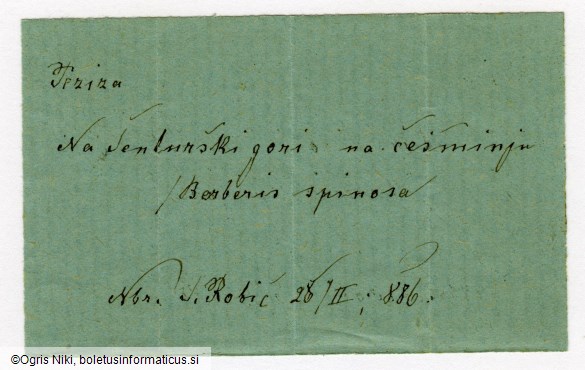 Peziza
Na Šenturški gori na češminju
/Berberis spinosa
Nbr. S. Robič 28/II; 886.
©Ogris Niki, boletusinformaticus.si